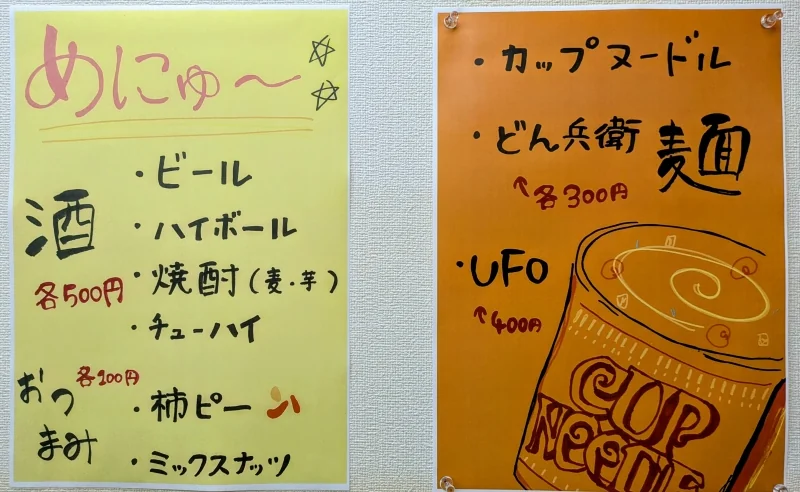 めにゅ〜
酒
各500円
・ビール
・ハイボール
・焼酎(麦・芋)
・チューハイ
おつまみ
各200円
・柿ピー
・ミックスナッツ
・カップヌードル
・どん兵衛
麺
↑各300円
・UFO
↑400円
CUP
NOODLE